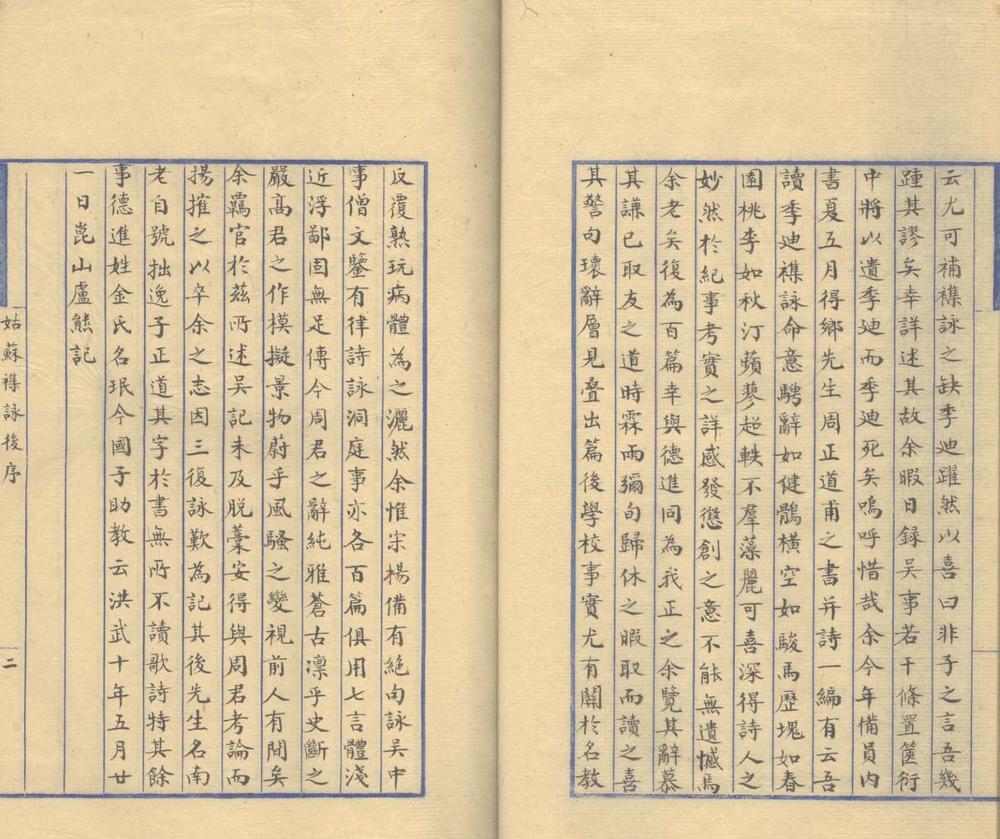 云尤可補襍詠之缺季迪躍然以喜曰非子之言吾幾
踵其謬矣幸詳述其故余暇日録吳事若干條置篋衍
中將以遺季迪而季迪死矣嗚呼惜哉余今年備員内
書夏五月得鄉先生周正道甫之書并詩一編有云吾
讀季迪襍詠命意騁辭如健鶻橫空如駿馬歷塊如春
園桃李如秋汀蘋蓼超軼不羣藻麗可喜深得詩人之
妙然於紀事考實之詳感發懲創之意不能無遺憾焉
余老矣復為百篇幸與德進同為我正之余覽其辭慕
其謙已取友之道時霖雨彌旬歸休之暇取而讀之喜
其警句瓌辭層見叠出篇後學校事實尤有關於名教
反覆熟玩病體為之灑然余惟宋楊備有絶句詠吳中
事僧文鑒有律詩詠洞庭事亦各百篇俱用七言體淺
近浮鄙固無足傳今周君之辭純雅蒼古凛乎史斷之
嚴髙君之作模擬景物蔚乎風騷之變視前人有間矣
余羈官於茲所述吳記未及脱藁安得與周君考論而
揚搉之以卒余之志因三復詠歎為記其後先生名南
老自號拙逸子正道其字於書無所不讀歌詩特其餘
事德進姓金氏名珉今國子助教云洪武十年五月廿
一日崑山盧熊記
姑蘇襍詠後序
二